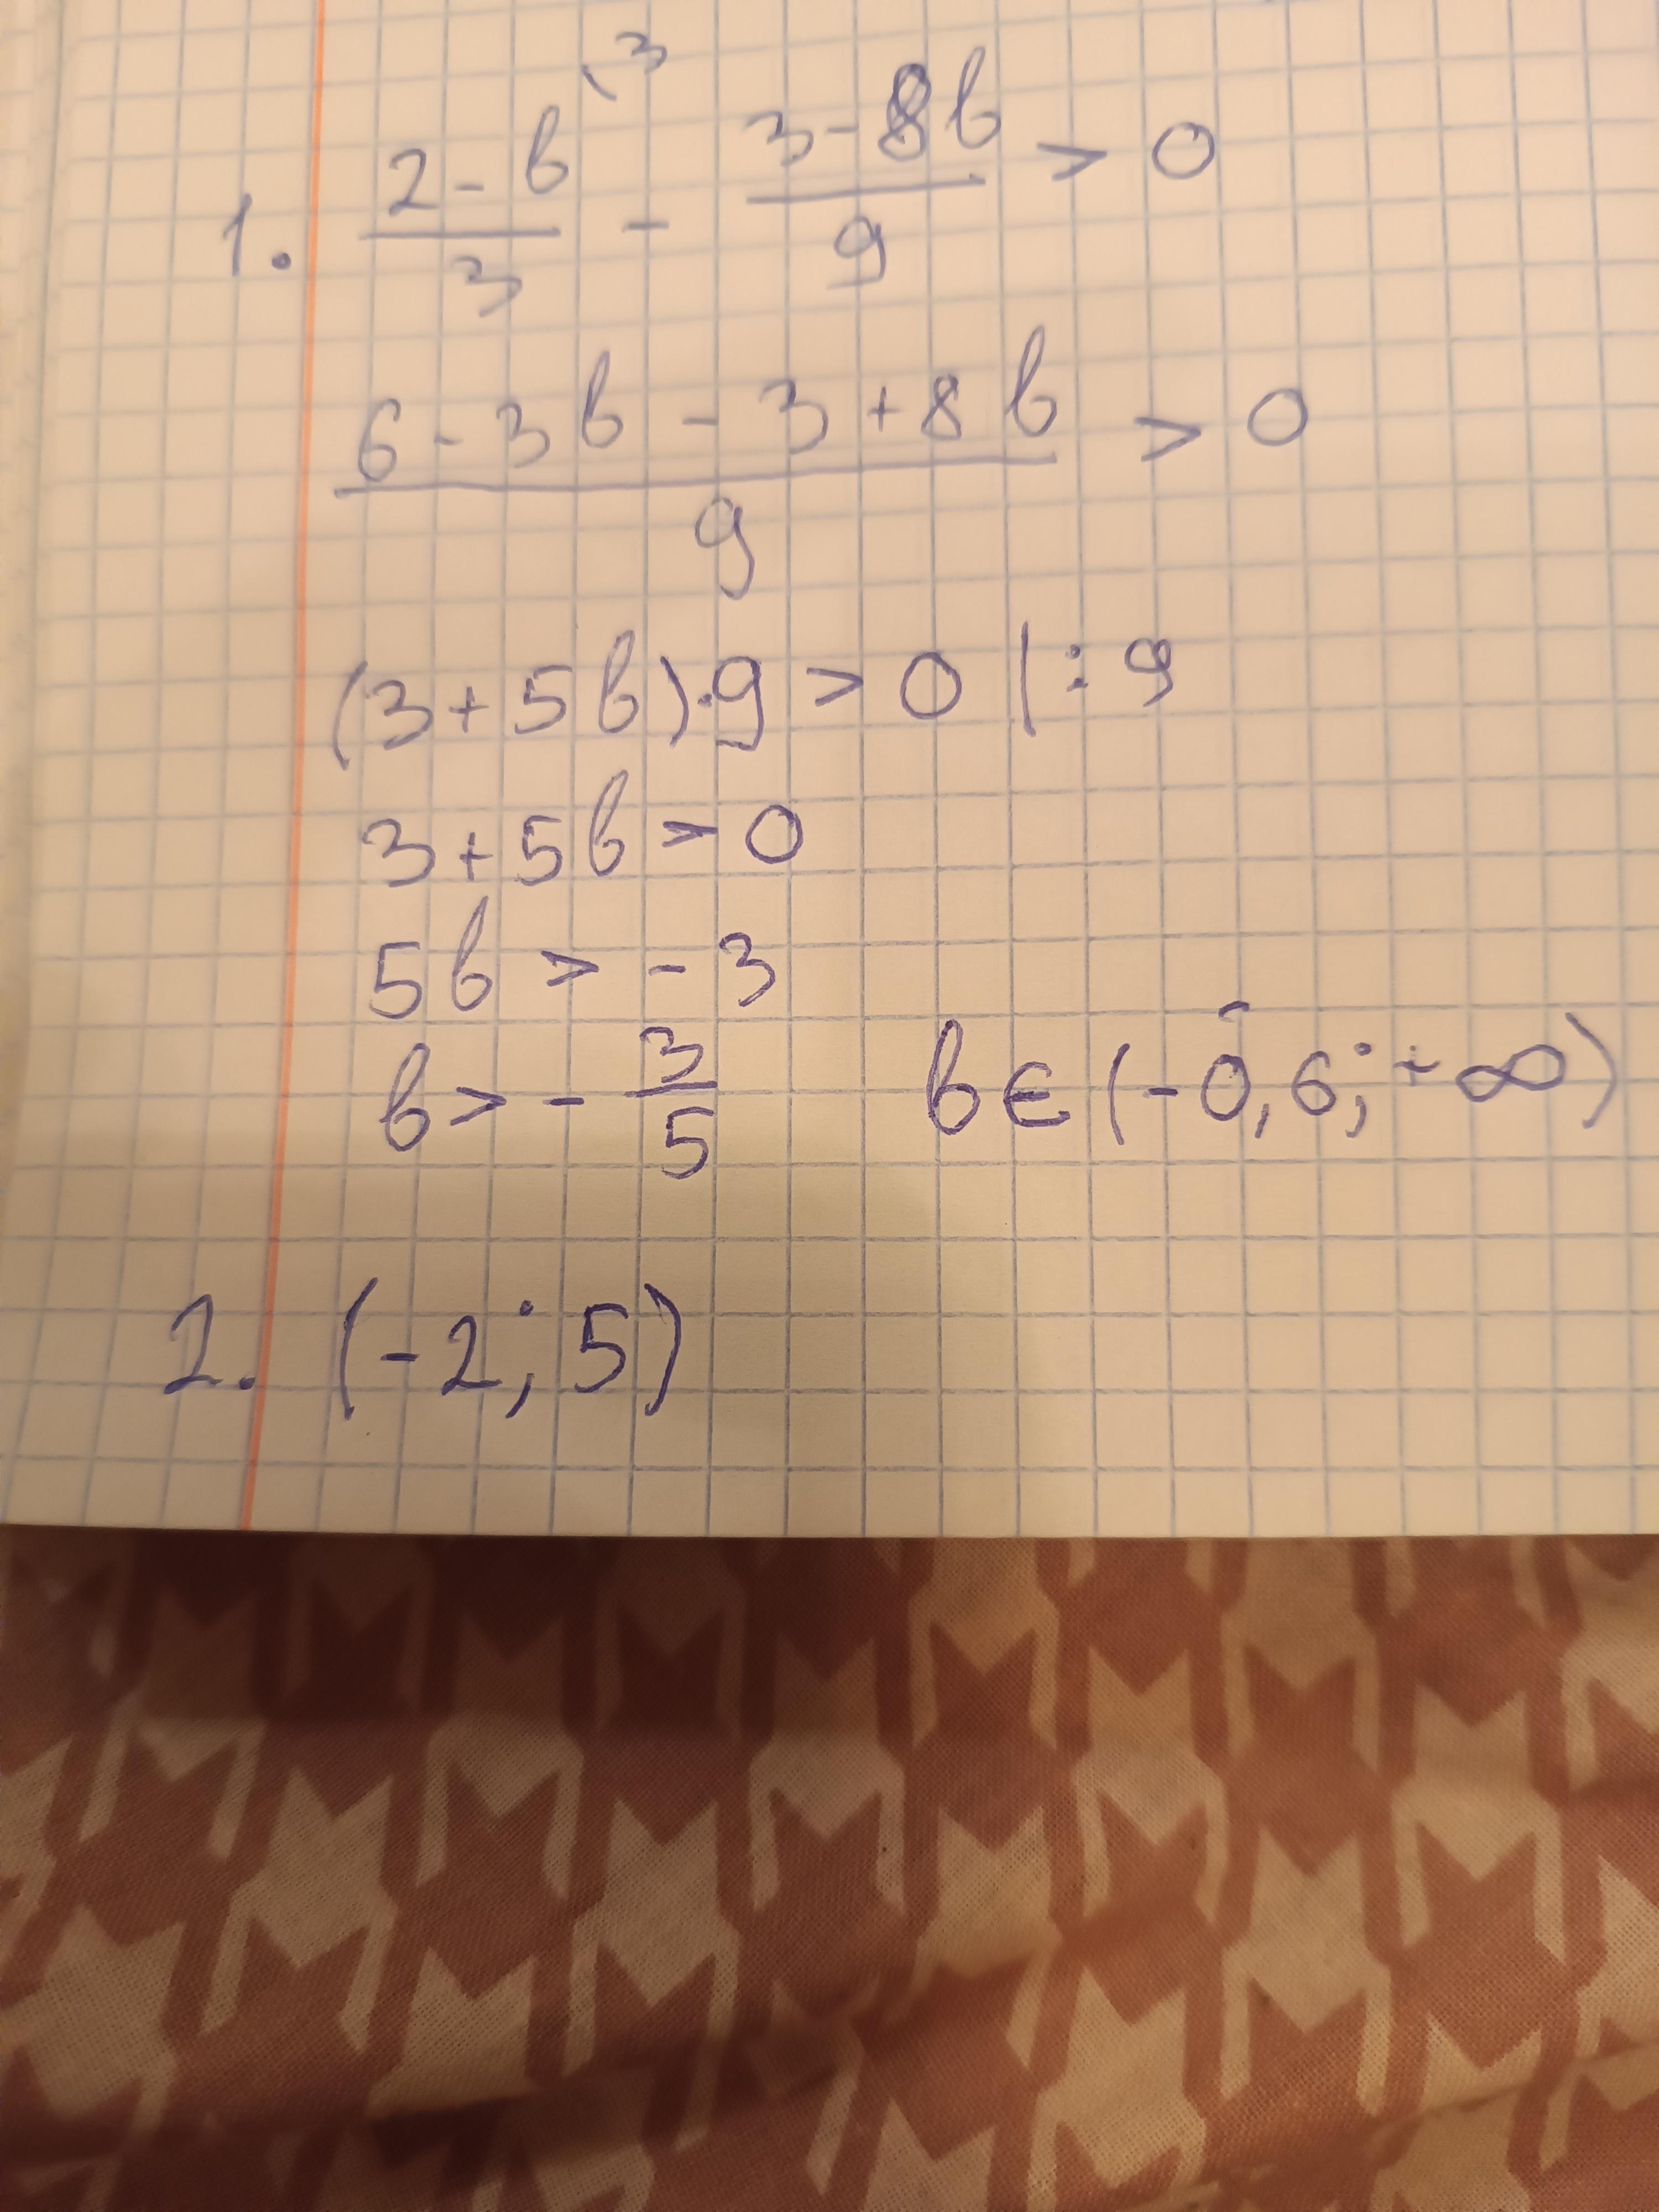 1. (2 - b)/3 \3 - (3 - 8b)/9 > 0
(6 - 3b - 3 + 8b)/9 > 0
(3 + 5b)·9 > 0 | : 9
3 + 5b > 0
5b > - 3
b > - 3/5 b ∈ (- 0,6; + ∞)
2. (-2; 5)